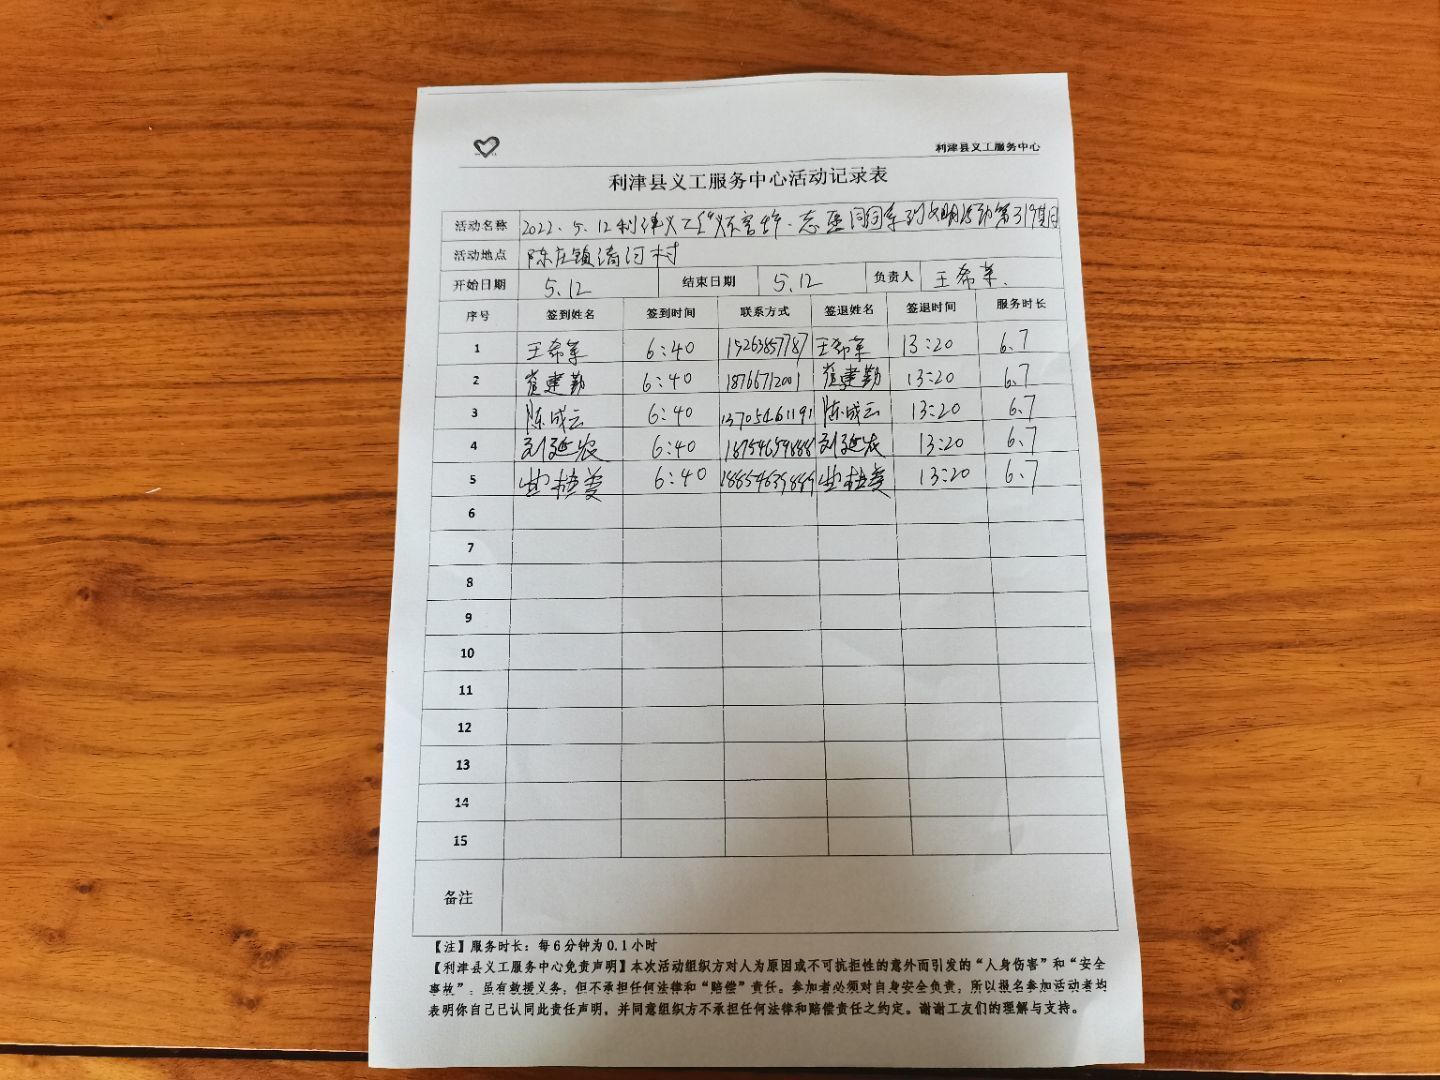 利津县义工服务中心
利津县义工服务中心活动记录表
活动名称 2022.5.12利津义工 志愿同行系列文明活动第319期
活动地点 陈庄镇清河村
开始日期 5.12 结束日期 5.12 负责人 王希军
序号 签到姓名 签到时间 联系方式 签退姓名 签退时间 服务时长
1 王希军 6:40 15263857787 王希军 13:20 6.7
2 崔建勤 6:40 18766712001 崔建勤 13:20 6.7
3 陈成云 6:40 13705461191 陈成云 13:20 6.7
4 刘延农 6:40 18754659888 刘延农 13:20 6.7
5 6:40 13:20 6.7
6
7
8
9
10
11
12
13
14
15
备注
【注】服务时长：每6分钟为0.1小时
【利津县义工服务中心免责声明】本次活动组织方对人为原因或不可抗拒性的意外而引发的“人身伤害”和“安全
事故”，虽有救援义务，但不承担任何法律和“赔偿”责任。参加者必须对自身安全负责，所以报名参加活动者均
表明你自己已认同此责任声明，并同意组织方不承担任何法律和赔偿责任之约定。谢谢工友们的理解与支持。